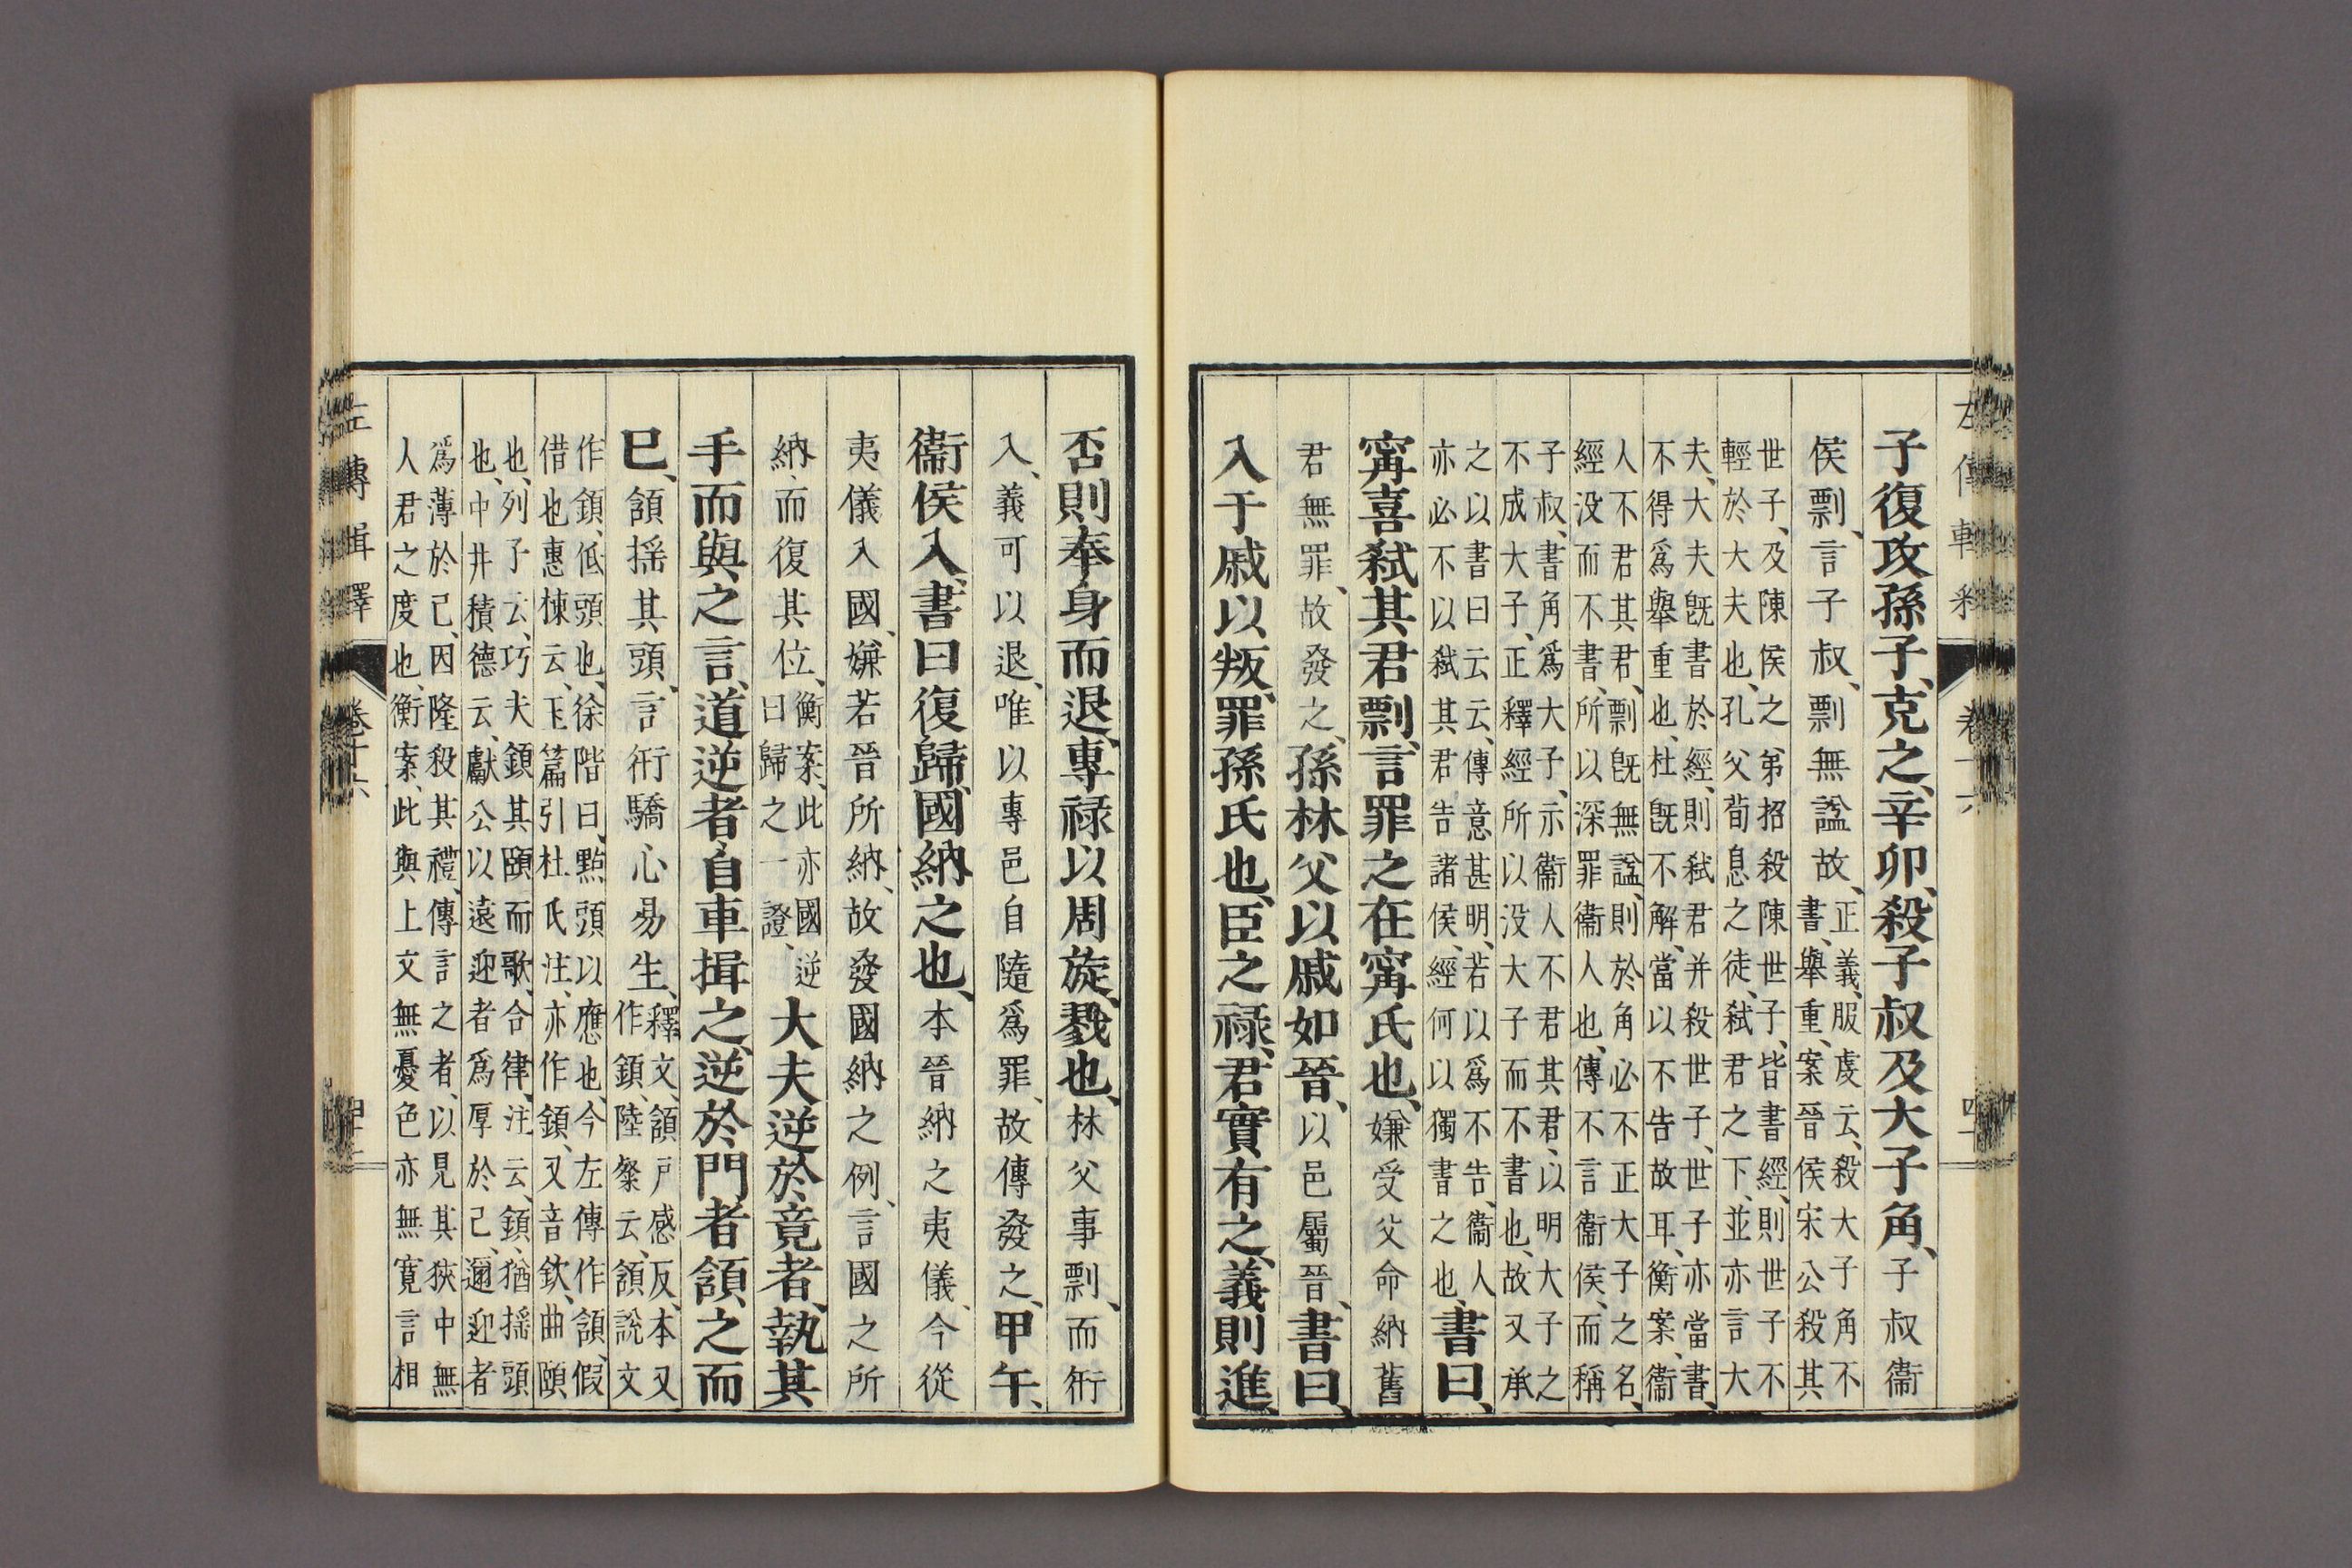 子復攻孫子、克之、辛卯、殺子叔及大子角、子叔衞
侯剽、言子叔、剽無諡故、正義、服虔云、殺大子角不
書、舉重、案晉侯宋公殺其
世子、及陳侯之弟招殺陳世子、皆書經、則世子不
輕於大夫也、孔父荀息之徒、弑君之下、並亦言大
夫、大夫旣書於經、則弑君并殺世子、世子亦當書、
不得爲舉重也、杜旣不解、當以不告故耳、衡案、衞
人不君其君、剽旣無諡、則於角必不正大子之名、
經没而不書、所以深罪衞人也、傳不言衞侯、而稱
子叔、書角爲大子、示衞人不君其君、以明大子之
不成大子、正釋經所以没大子而不書也、故又承
之以書曰云云、傳意甚明、若以爲不告、衞人
亦必不以弑其君告諸侯、經何以獨書之也、書曰、
寗喜弑其君剽、言罪之在寗氏也、嫌受父命納舊
君無罪、故發之、孫林父以戚如晉、以邑屬晉、書曰、
入于戚以叛、罪孫氏也、臣之祿、君實有之、義則進、
否則奉身而退、專祿以周旋、戮也、林父事剽、而衎
入、義可以退、唯以專邑自隨爲罪、故傳發之、甲午、
衞侯入、書曰復歸、國納之也、本晉納之夷儀、今從
夷儀入國、嫌若晉所納、故發國納之例、言國之所
納、而復其位、衡案、此亦國逆
曰歸之一證、大夫逆於竟者、執其
手而與之言、道逆者、自車揖之、逆於門者、頷之而
已、頷搖其頭、言衎驕心易生、釋文、頷戸感反、本又
作顉、陸粲云、頷說文
作顉、低頭也、徐階曰、點頭以應也、今左傳作頷、假
借也、惠棟云、玉篇引杜氏注、亦作顉、又音欽、曲頤
也、列子云、巧夫顉其頤而歌、合律、注云、顉、猶搖頭
也、中井積德云、獻公以遠迎者爲厚於己、邇迎者
爲薄於己、因隆殺其禮、傳言之者、以見其狹中無
人君之度也、衡案、此與上文無憂色亦無寬言相
左傳輯釋
卷十六